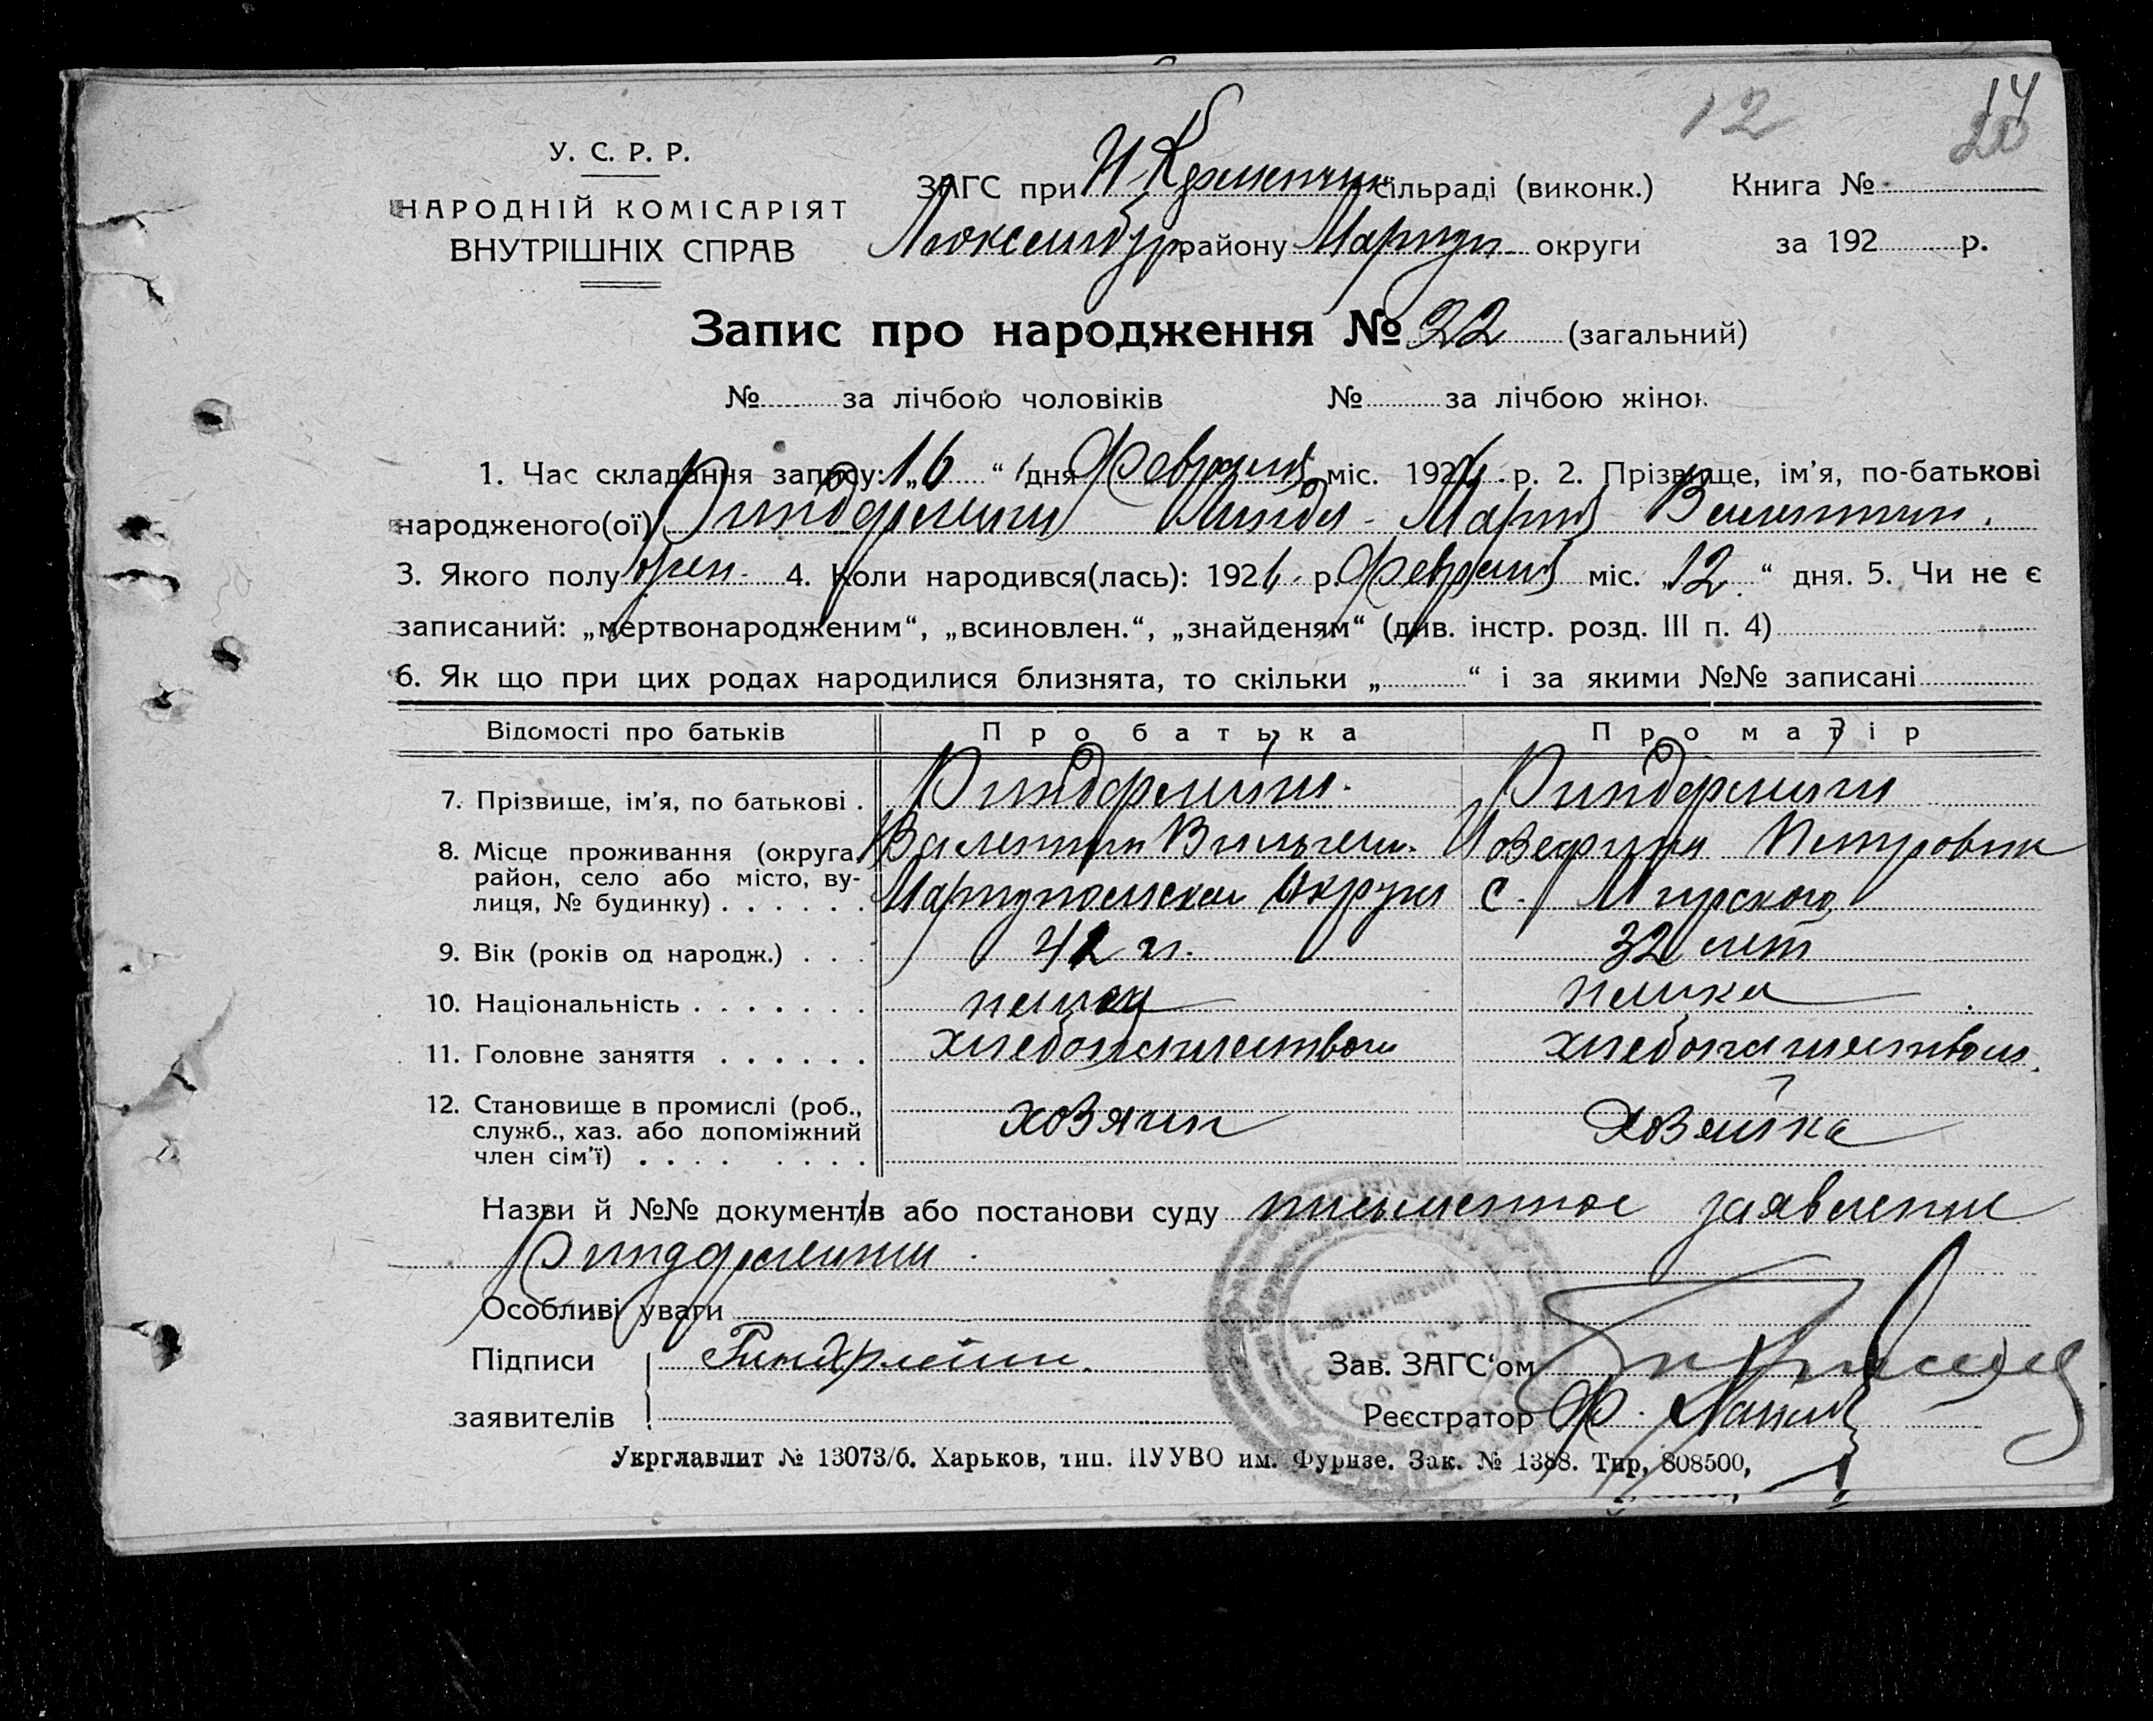 12
14
20
У. С. Р. Р.
НАРОДНІЙ КОМІСАРІЯТ
ВНУТРІШНІХ СПРАВ
ЗАГС при Н-Кременчик сільраді (виконк.) Книга №
Люксембур району Мариуп. округи за 192 р.
Запис про народження № 22 (загальний)
№ за лічбою чоловіків № за лічбою жінок
1. Час складання запису: „16“ дня Февраля міс. 1926 р. 2. Прізвище, ім'я, по-батькові
народженого(ої) Риндфлейш Линда-Мария Валентин.
3. Якого полу жен. 4. Коли народився(лась): 1926 р. Февраля міс. „12“ дня. 5. Чи не є
записаний: „мертвонародженим“, „всиновлен.“, „знайденям“ (див. інстр. розд. III п. 4)
6. Як що при цих родах народилися близнята, то скільки „ “ і за якими №№ записані
Відомості про батьків Про батька Про матір
7. Прізвище, ім'я, по батькові . Риндфлейш. Риндфлейш
8. Місце проживання (округа, район, село або місто, вулиця, № будинку) . . . . . . Валентин Вильгельм. Мариупольской Округи Иозефина Петровна с. Мирского
9. Вік (років од народж.) . . . 42 г. 32 лет
10. Національність . . . . . . . немец немка
11. Головне заняття . . . . . . хлебопашеством хлебопашеством.
12. Становище в промислі (роб., служб., хаз. або допоміжний член сім'ї) . . . . . . . . хозяин Хозяйка
Назви й №№ документів або постанови суду письменное заявление
Риндфлейш.
Особливі уваги
Підписи Риндфлейш. Зав. ЗАГС'ом
заявителів Реєстратор Ф.
Укрглавлит № 13073/б. Харьков, тип. ПУУВО им. Фрунзе. Зак. № 1388. Тир. 808500,